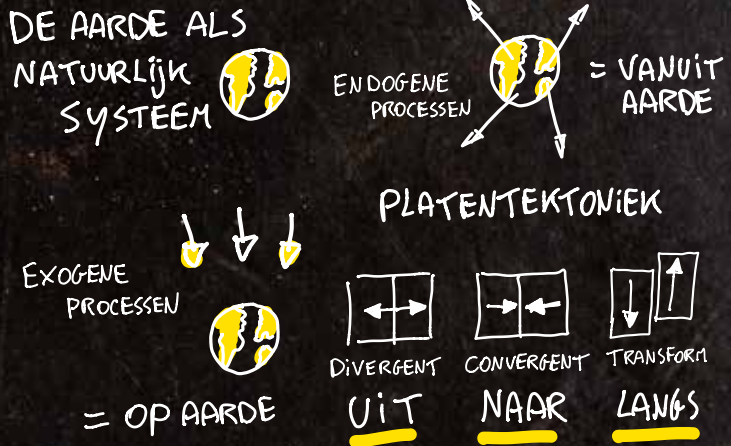 DE AARDE ALS
NATUURLIJK
SYSTEEM
ENDOGENE
PROCESSEN
= VANUIT
AARDE
EXOGENE
PROCESSEN
= OP AARDE
PLATENTEKTONIEK
DIVERGENT
UIT
CONVERGENT
NAAR
TRANSFORM
LANGS